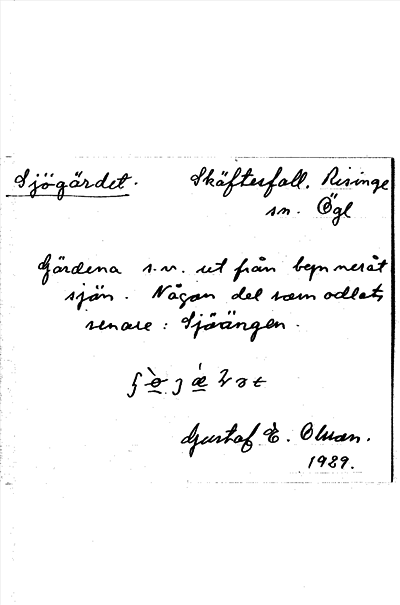 Sjögärdet. Skäftesfall. Risinge
sn. Ögl
Gärdena s.v. ut från byn neråt
sjön. Någon del som odlats
senare: Sjöängen.
Gustaf E. Olsson.
1929.